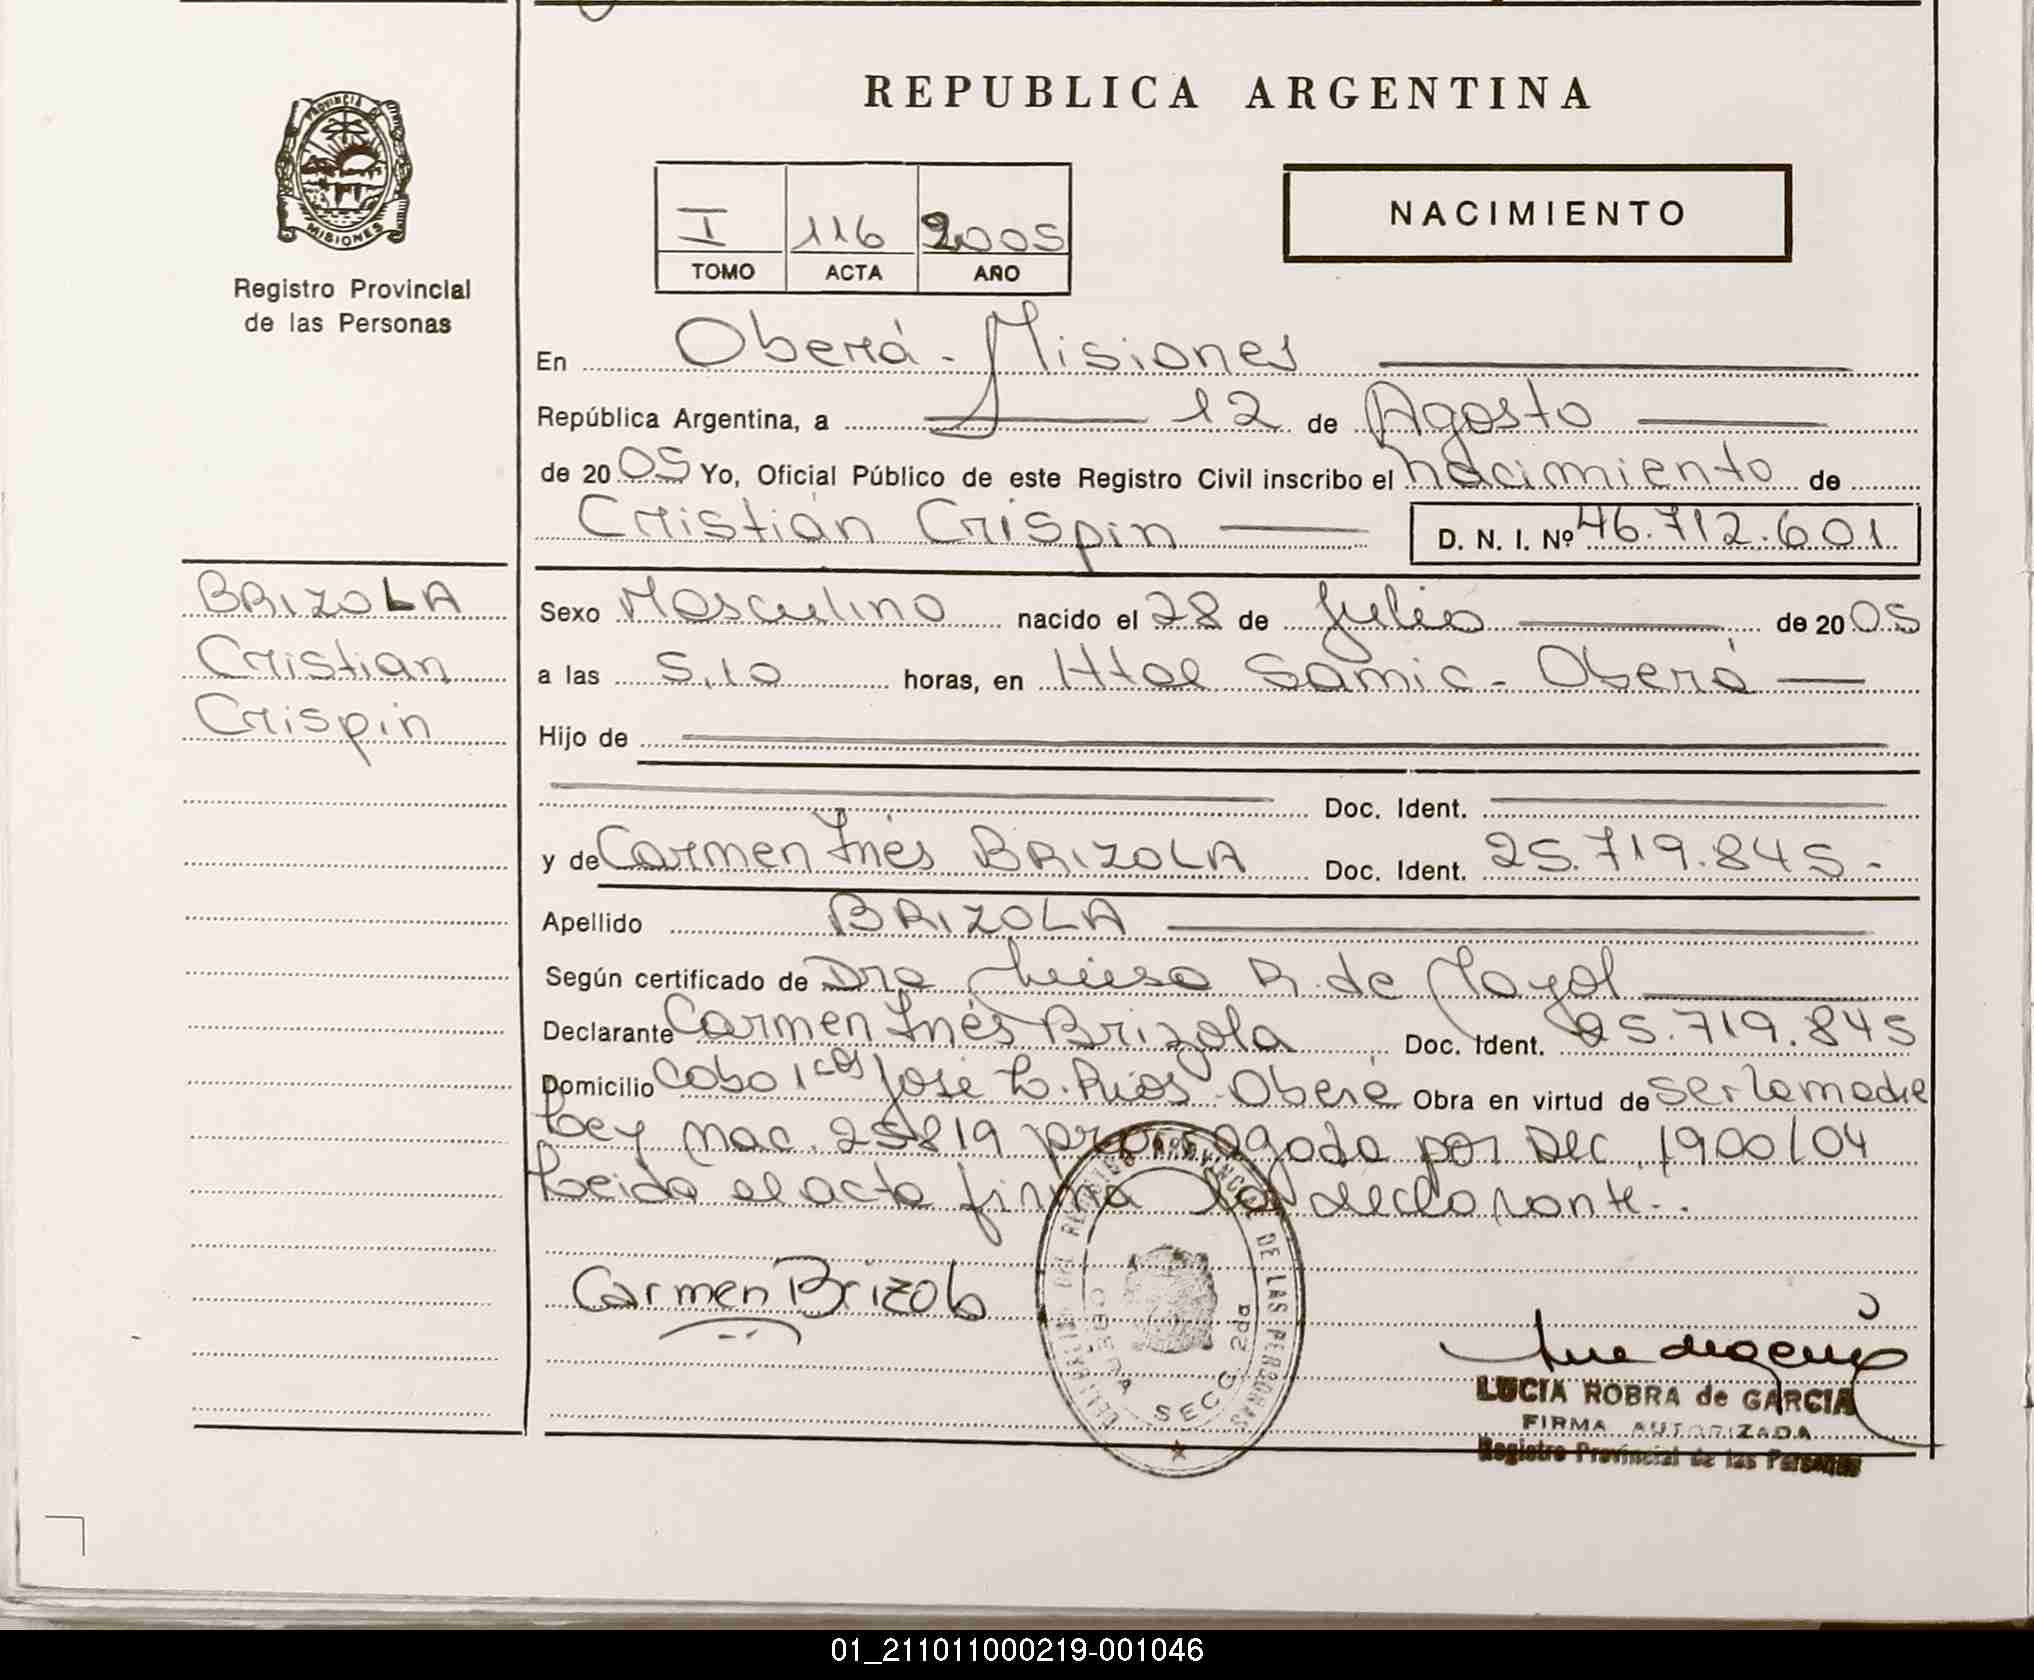 REPUBLICA ARGENTINA
PROVINCIA
MISIONES
Registro Provincial
de las Personas
I 116 2005
TOMO ACTA AÑO
NACIMIENTO
En Oberá - Misiones
República Argentina, a 12 de Agosto
de 2005 Yo, Oficial Público de este Registro Civil inscribo el nacimiento de
Cristian Crispin D. N. I. Nº 46.712.601
BRIZOLA
Cristian
Crispin
Sexo Masculino nacido el 28 de Julio de 2005
a las 5,10 horas, en Htal Samic - Oberá
Hijo de
Doc. Ident.
y de Carmen Inés BRIZOLA Doc. Ident. 25.719.845.-
Apellido BRIZOLA
Según certificado de Dra R. de Mayol
Declarante Carmen Inés Brizola Doc. Ident. 25.719.845
Domicilio Cabo 1º José L. Rios Oberá Obra en virtud de ser la madre
Ley Nac. 25819 prorrogada por Dec. 1900/04
Leida el acta firma la declarante.-
Carmen Brizola
REGISTRO PROVINCIAL DE LAS PERSONAS
OBERA SECC. 2da
LUCIA ROBRA de GARCIA
FIRMA AUTORIZADA
Registro Provincial de las Personas
01_211011000219-001046